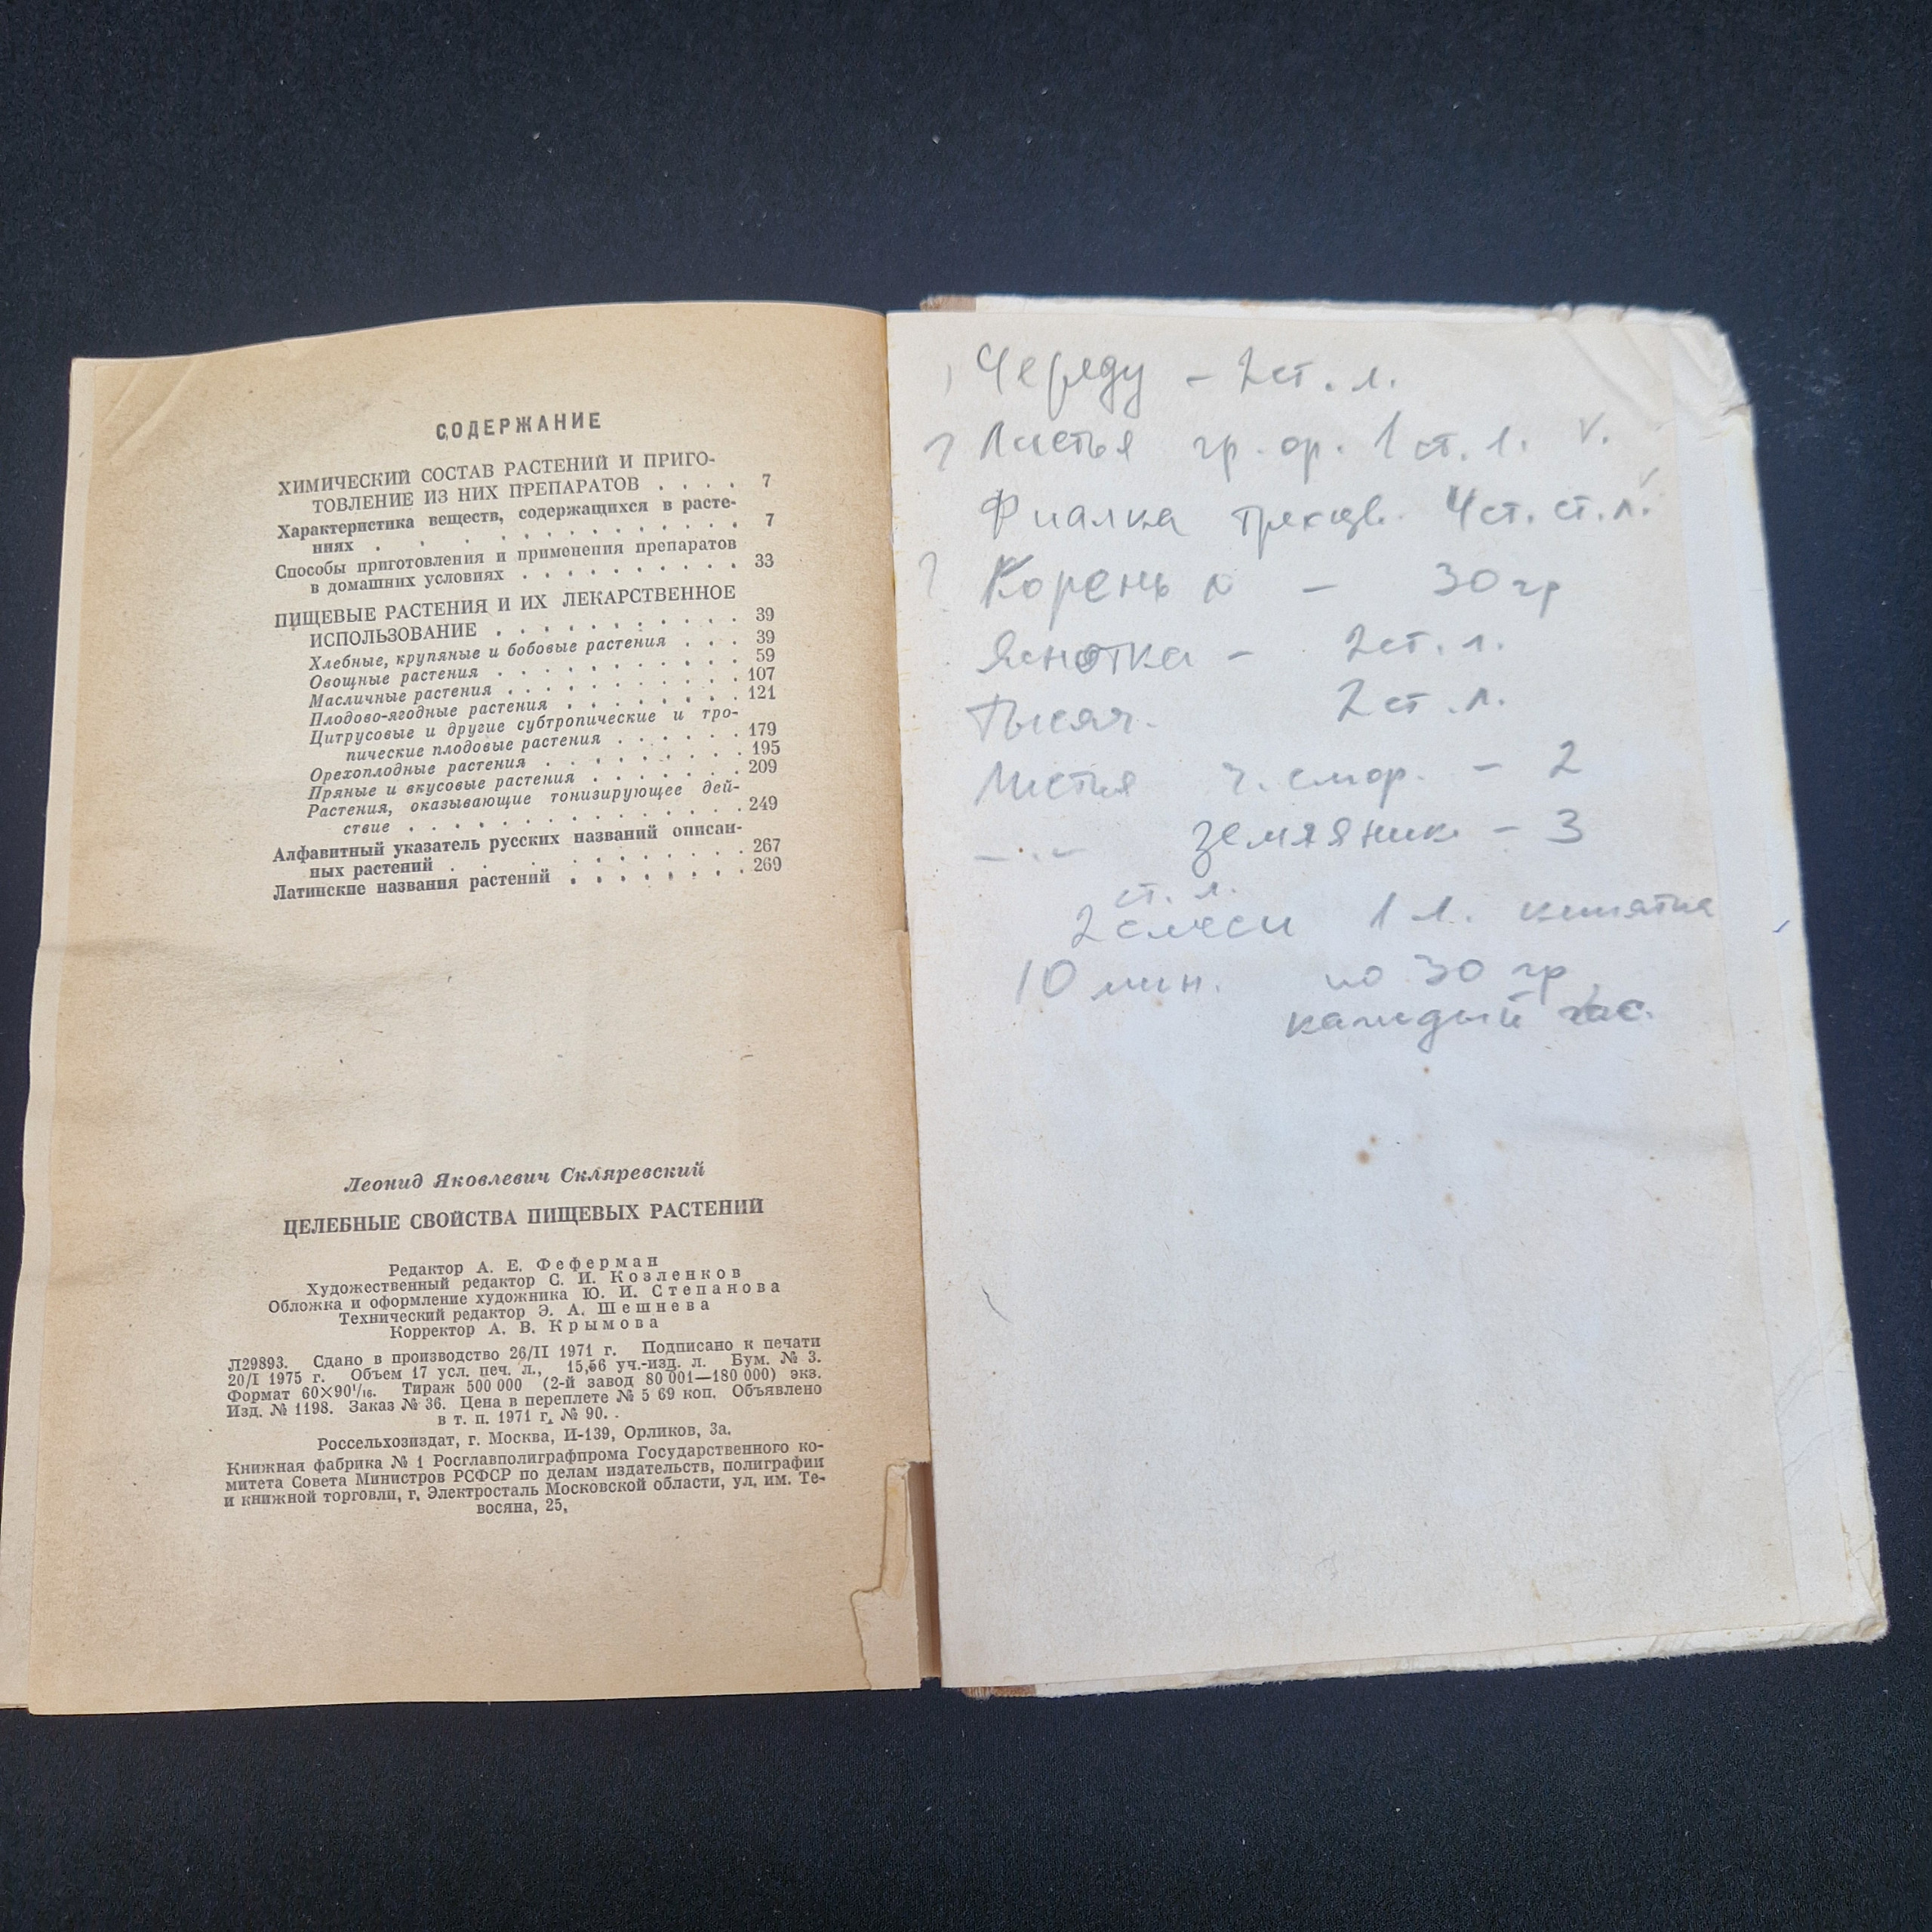 СОДЕРЖАНИЕ
ХИМИЧЕСКИЙ СОСТАВ РАСТЕНИЙ И ПРИГО-
ТОВЛЕНИЕ ИЗ НИХ ПРЕПАРАТОВ . . . . 7
Характеристика веществ, содержащихся в расте-
ниях . . . . . . . . . . . . 7
Способы приготовления и применения препаратов
в домашних условиях . . . . . . . . . . 33
ПИЩЕВЫЕ РАСТЕНИЯ И ИХ ЛЕКАРСТВЕННОЕ
ИСПОЛЬЗОВАНИЕ . . . . . . . . . . . 39
Хлебные, крупяные и бобовые растения . . . 39
Овощные растения . . . . . . . . . . 59
Масличные растения . . . . . . . . . . 107
Плодово-ягодные растения . . . . . . . . 121
Цитрусовые и другие субтропические и тро-
пические плодовые растения . . . . . . 179
Орехоплодные растения . . . . . . . . . 195
Пряные и вкусовые растения . . . . . . . 209
Растения, оказывающие тонизирующее дей-
ствие . . . . . . . . . . . . . 249
Алфавитный указатель русских названий описан-
ных растений . . . . . . . . . . . 267
Латинские названия растений . . . . . . . . 269
Леонид Яковлевич Скляревский
ЦЕЛЕБНЫЕ СВОЙСТВА ПИЩЕВЫХ РАСТЕНИЙ
Редактор А. Е. Феферман
Художественный редактор С. И. Козленков
Обложка и оформление художника Ю. И. Степанова
Технический редактор Э. А. Шешнева
Корректор А. В. Крымова
Л29893. Сдано в производство 26/II 1971 г. Подписано к печати
20/I 1975 г. Объем 17 усл. печ. л., 15,56 уч.-изд. л. Бум. № 3.
Формат 60×90¹/₁₆. Тираж 500 000 (2-й завод 80 001—180 000) экз.
Изд. № 1198. Заказ № 36. Цена в переплете № 5 69 коп. Объявлено
в т. п. 1971 г. № 90.
Россельхозиздат, г. Москва, И-139, Орликов, 3а.
Книжная фабрика № 1 Росглавполиграфпрома Государственного ко-
митета Совета Министров РСФСР по делам издательств, полиграфии
и книжной торговли, г. Электросталь Московской области, ул. им. Те-
восяна, 25.
Череду – 2 ст. л.
? Листья гр. ор. 1 ст. л. v.
Фиалка трехцв. 4 ст. ст. л. v
? Корень л – 30 гр
Яснотка – 2 ст. л.
Тысяч. 2 ст. л.
Листья ч. смор. – 2
–·– земляник – 3
ст. л.
2 смеси 1 л. кипятка
10 мин. по 30 гр
каждый час.